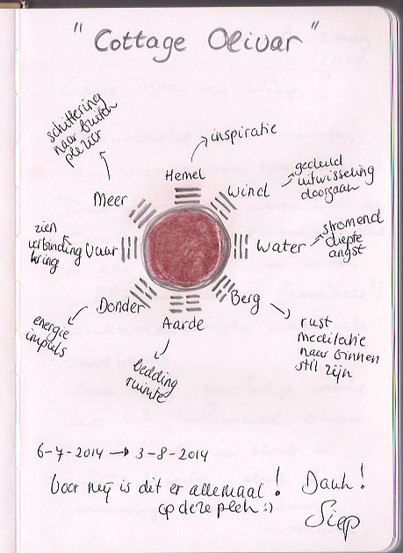 "Cottage Olivar"
schittering
naar buiten
plezier
inspiratie
Hemel
Wind
geduld
uitwisseling
doorgaan
Meer
zien
verbinding
kring
Vuur
Water
stromend
diepte
angst
Donder
energie
impuls
Aarde
bedding
ruimte
Berg
rust
meditatie
naar binnen
stil zijn
6-7-2014 → 3-8-2014
Voor mij is dit er allemaal!
op deze plek :)
Dank!
Siep